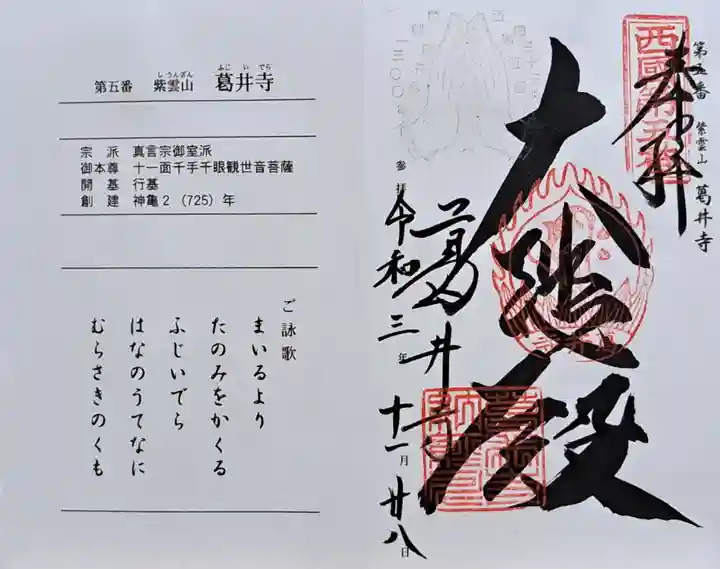 第五番 紫雲山 葛井寺
しうんざん ふじいでら
宗派 真言宗御室派
御本尊 十一面千手千眼観世音菩薩
開基 行基
創建 神亀2(725)年
ご詠歌
まいるより
たのみをかくる
ふじいでら
はなのうてなに
むらさきのくも
第五番 紫雲山 葛井寺
奉拝
西國第五番
大悲殿
葛井寺
参拝
令和三年十一月廿八日